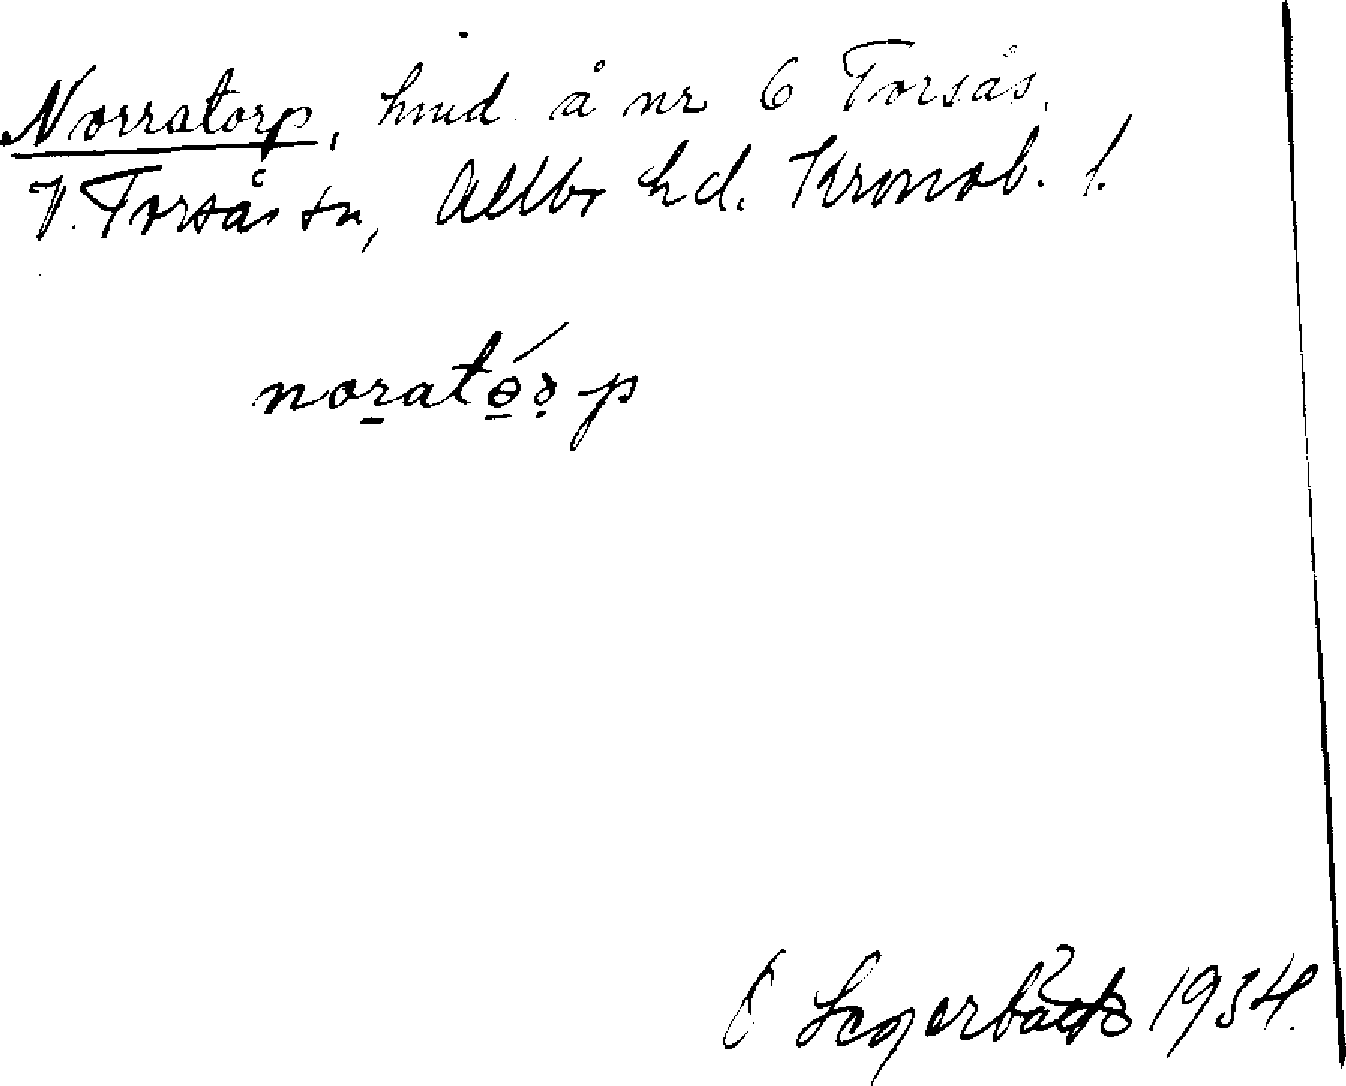 Norratorp, hmd å nr 6 Torsås.
V. Torsås sn, Allbo hd. Kronob. l.
noratɵ́rp
Segerbäck 1934.